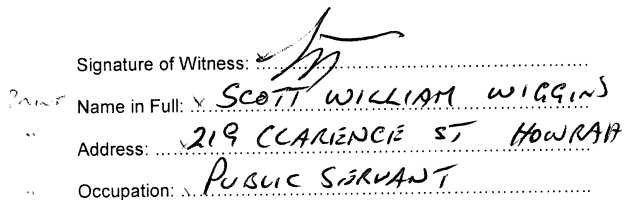 Signature of Witness:
Print Name in Full: x SCOTT WILLIAM WIGGINS
" Address: 219 CLARENCE ST HOWRAH
" Occupation: PUBLIC SERVANT